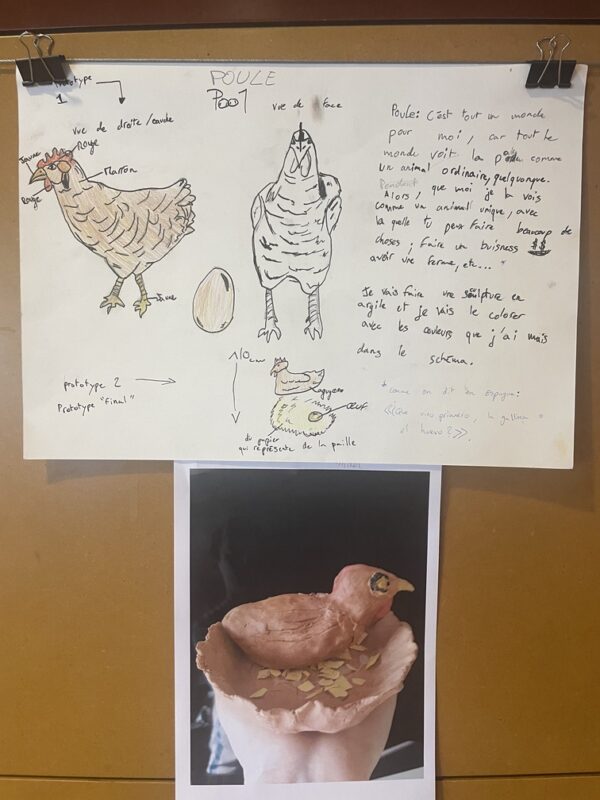 prototype
1
POULE
vue de droite/gauche
Jaune
Rouge
Marron
Rouge
Jaune
vue de face
Poule: C'est tout un monde
pour moi, car tout le
monde voit la comme
un animal ordinaire, quelquonque.
Pendant
Alors, que moi je la vois
comme un animal unique, avec
la quelle tu peux faire beaucoup de
choses; faire un buisness
avoir une ferme, etc... *
Je vais faire une sculpture en
argile et je vais le colorer
avec les couleurs que j'ai mais
dans le schéma.
* comme on dit en espagnol:
<<¿Que vino primero, la gallina o
el huevo?>>.
prototype 2
Prototype "final"
10cm
œuf
du papier
qui représente de la paille